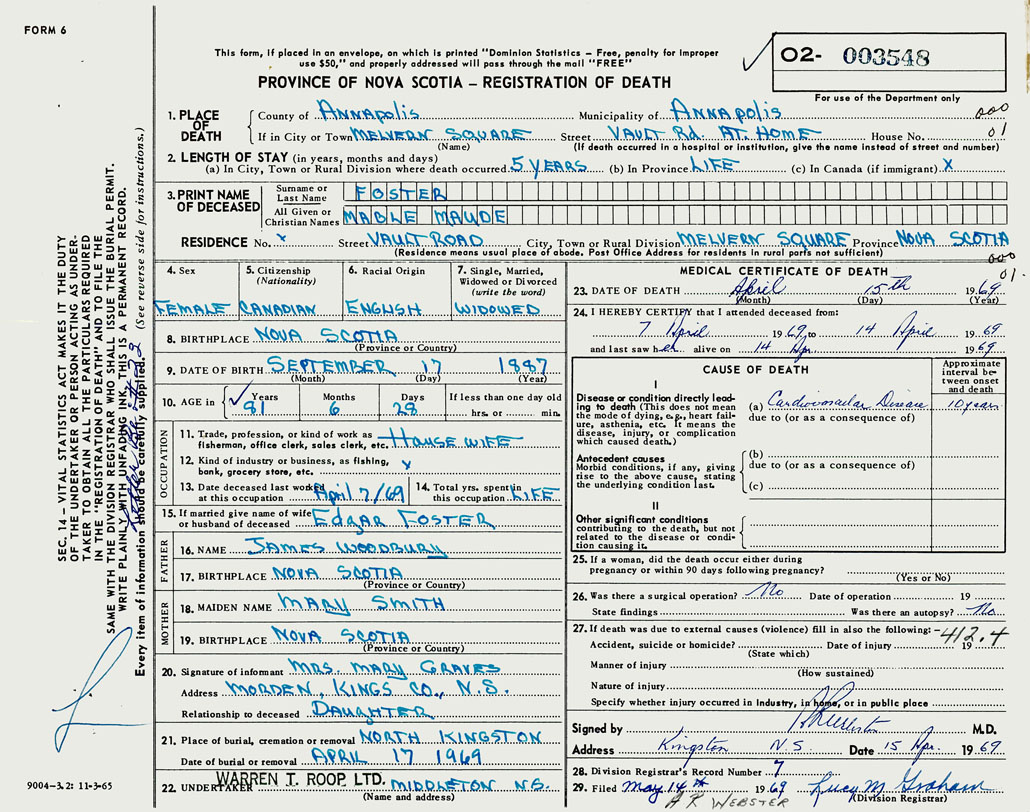 FORM 6
This form, if placed in an envelope, on which is printed "Dominion Statistics – Free, penalty for improper
use $50," and properly addressed will pass through the mail "FREE"
PROVINCE OF NOVA SCOTIA – REGISTRATION OF DEATH
O2- 003548
For use of the Department only
000
01
1. PLACE OF DEATH
County of Annapolis Municipality of Annapolis
If in City or Town MELVERN SQUARE Street VAULT Rd. AT HOME House No.
(Name) (If death occurred in a hospital or institution, give the name instead of street and number)
2. LENGTH OF STAY (in years, months and days)
(a) In City, Town or Rural Division where death occurred 5 YEARS (b) In Province LIFE (c) In Canada (if immigrant) X
3. PRINT NAME OF DECEASED
Surname or Last Name FOSTER
All Given or Christian Names MABLE MAUDE
RESIDENCE No. x Street VAULT ROAD City, Town or Rural Division MELVERN SQUARE Province NOVA SCOTIA
(Residence means usual place of abode. Post Office Address for residents in rural parts not sufficient)
000
01.
4. Sex
FEMALE
5. Citizenship
(Nationality)
CANADIAN
6. Racial Origin
ENGLISH
7. Single, Married,
Widowed or Divorced
(write the word)
WIDOWED
8. BIRTHPLACE NOVA SCOTIA
(Province or Country)
9. DATE OF BIRTH SEPTEMBER 17 1887
(Month) (Day) (Year)
10. AGE in
Years Months Days If less than one day old
81 6 28 hrs. or min.
OCCUPATION
11. Trade, profession, or kind of work as
fisherman, office clerk, sales clerk, etc. HOUSE WIFE
12. Kind of industry or business, as fishing,
bank, grocery store, etc. x
13. Date deceased last worked
at this occupation April 7/69
14. Total yrs. spent in
this occupation LIFE
15. If married give name of wife
or husband of deceased EDGAR FOSTER
FATHER
16. NAME JAMES WOODBURY
17. BIRTHPLACE NOVA SCOTIA
(Province or Country)
MOTHER
18. MAIDEN NAME MARY SMITH
19. BIRTHPLACE NOVA SCOTIA
(Province or Country)
20. Signature of informant MRS. MARY GRAVES
Address MORDEN, KINGS CO., N.S.
Relationship to deceased DAUGHTER
21. Place of burial, cremation or removal NORTH KINGSTON
Date of burial or removal APRIL 17 1969
22. UNDERTAKER WARREN T. ROOP LTD. MIDDLETON N.S.
(Name and address)
MEDICAL CERTIFICATE OF DEATH
23. DATE OF DEATH April 15th 1969
(Month) (Day) (Year)
24. I HEREBY CERTIFY that I attended deceased from:
7 April 1969, to 14 April 1969
and last saw her alive on 14 Apr 1969
CAUSE OF DEATH
Approximate
interval be-
tween onset
and death
I
Disease or condition directly lead-
ing to death (This does not mean
the mode of dying, e.g., heart fail-
ure, asthenia, etc. It means the
disease, injury, or complication
which caused death.)
(a) Cardiovascular Disease 10 years
due to (or as a consequence of)
Antecedent causes
Morbid conditions, if any, giving
rise to the above cause, stating
the underlying condition last.
(b)
due to (or as a consequence of)
(c)
II
Other significant conditions
contributing to the death, but not
related to the disease or condi-
tion causing it.
25. If a woman, did the death occur either during
pregnancy or within 90 days following pregnancy?
(Yes or No)
26. Was there a surgical operation? No Date of operation 19
State findings Was there an autopsy? No
27. If death was due to external causes (violence) fill in also the following:– 412.4
Accident, suicide or homicide? Date of injury 19
(State which)
Manner of injury
(How sustained)
Nature of injury
Specify whether injury occurred in industry, in home, or in public place
Signed by M.D.
Address Kingston N.S. Date 15 Apr. 1969
28. Division Registrar's Record Number 7
29. Filed May 14th 1969 Lucy M Graham
(Division Registrar)
A R WEBSTER
SEC. 14 – VITAL STATISTICS ACT MAKES IT THE DUTY
OF THE UNDERTAKER OR PERSON ACTING AS UNDER-
TAKER TO OBTAIN ALL THE PARTICULARS REQUIRED
IN THE "REGISTRATION OF DEATH" AND TO FILE THE
SAME WITH THE DIVISION REGISTRAR WHO SHALL ISSUE THE BURIAL PERMIT.
WRITE PLAINLY WITH UNFADING INK. THIS IS A PERMANENT RECORD.
Every item of information should be carefully supplied. (See reverse side for instructions.)
9004–3.2: 11-3-65